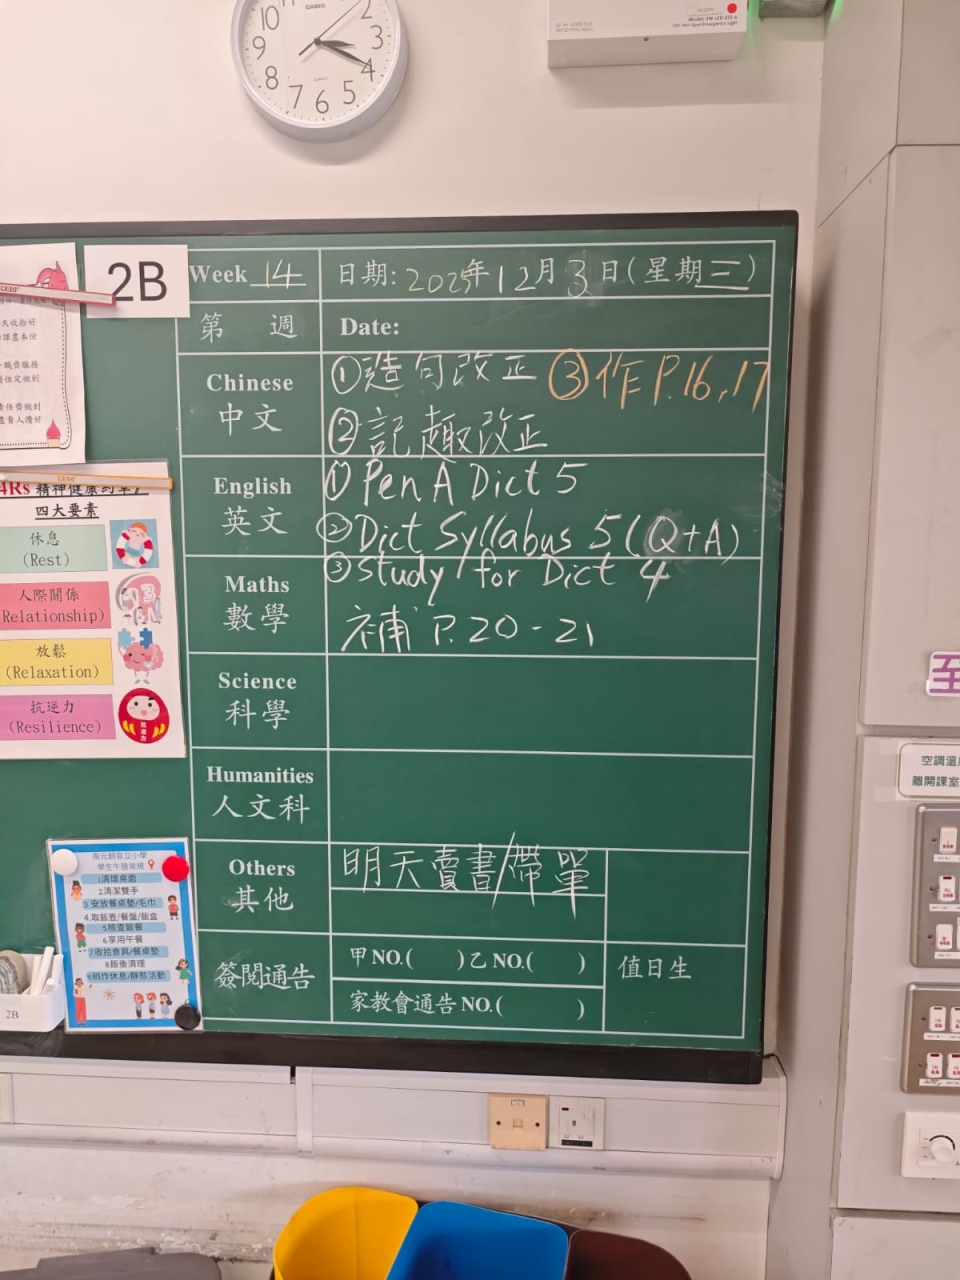 CASIO
QUARTZ
2B
Week 14
日期: 2025年12月3日(星期三)
第 週
Date:
Chinese
中文
①造句改正 ③作 P.16,17
②記趣改正
English
英文
① Pen A Dict 5
② Dict Syllabus 5 (Q+A)
③ Study for Dict 4
Maths
數學
補 P.20-21
Science
科學
Humanities
人文科
Others
其他
明天賣書/帶單
簽閱通告
甲NO.( )乙NO.( )
家教會通告NO.( )
值日生
4Rs 精神健康的
四大要素
休息
(Rest)
人際關係
(Relationship)
放鬆
(Relaxation)
抗逆力
(Resilience)
學生午膳常規
1.清理桌面
2.清潔雙手
3.安放餐桌墊/毛巾
4.取飯壺/餐盤/飯盒
5.檢查飯餐
6.享用午餐
7.收拾食具/餐桌墊
8.飯後清理
9.稍作休息/靜態活動
2B
至
空調溫
離開課室